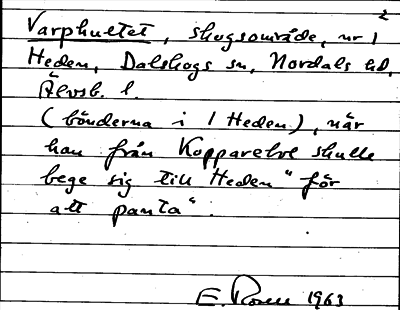 2
Varphultet, skogsområde, nr 1
Heden, Dalskogs sn, Nordals hd,
Älvsb. l.
(bönderna i 1 Heden), när
han från Kopparelve skulle
bege sig till Heden "för
att panta".
E. Rosell 1963